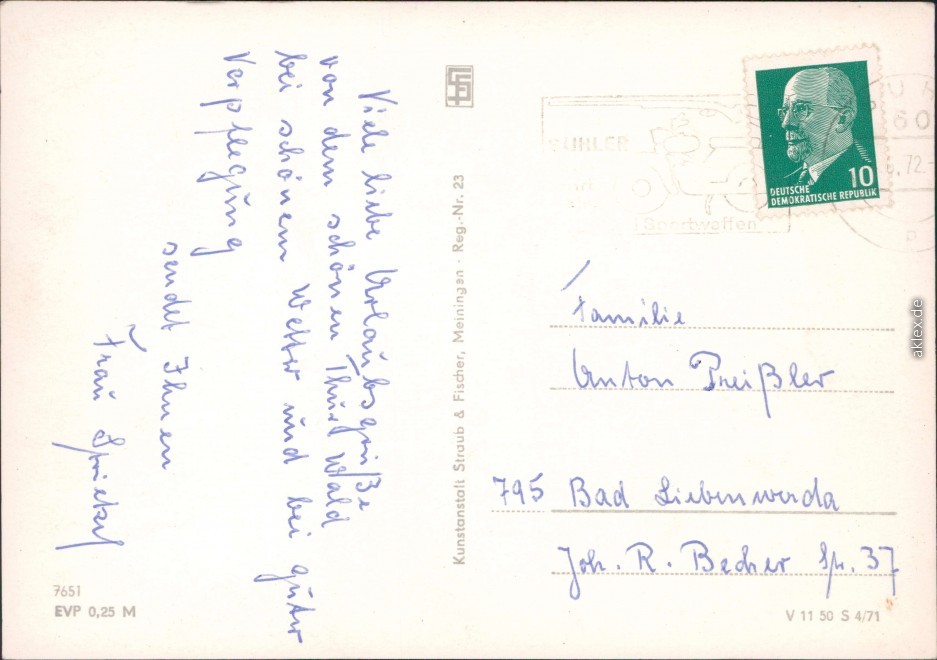 Viele liebe Urlaubsgrüße
von dem schönen Thür Wald
bei schönem Wetter und bei guter
Verpflegung
sendet Ihnen
Frau
Kunstanstalt Straub & Fischer, Meiningen · Reg.-Nr. 23
SUHLER
Sportwaffen
60
72
DEUTSCHE
DEMOKRATISCHE REPUBLIK
10
Familie
Anton Preißler
795 Bad Liebenwerda
Joh. R. Becher Str. 37
7651
EVP 0,25 M
V 11 50 S 4/71
aklex.de